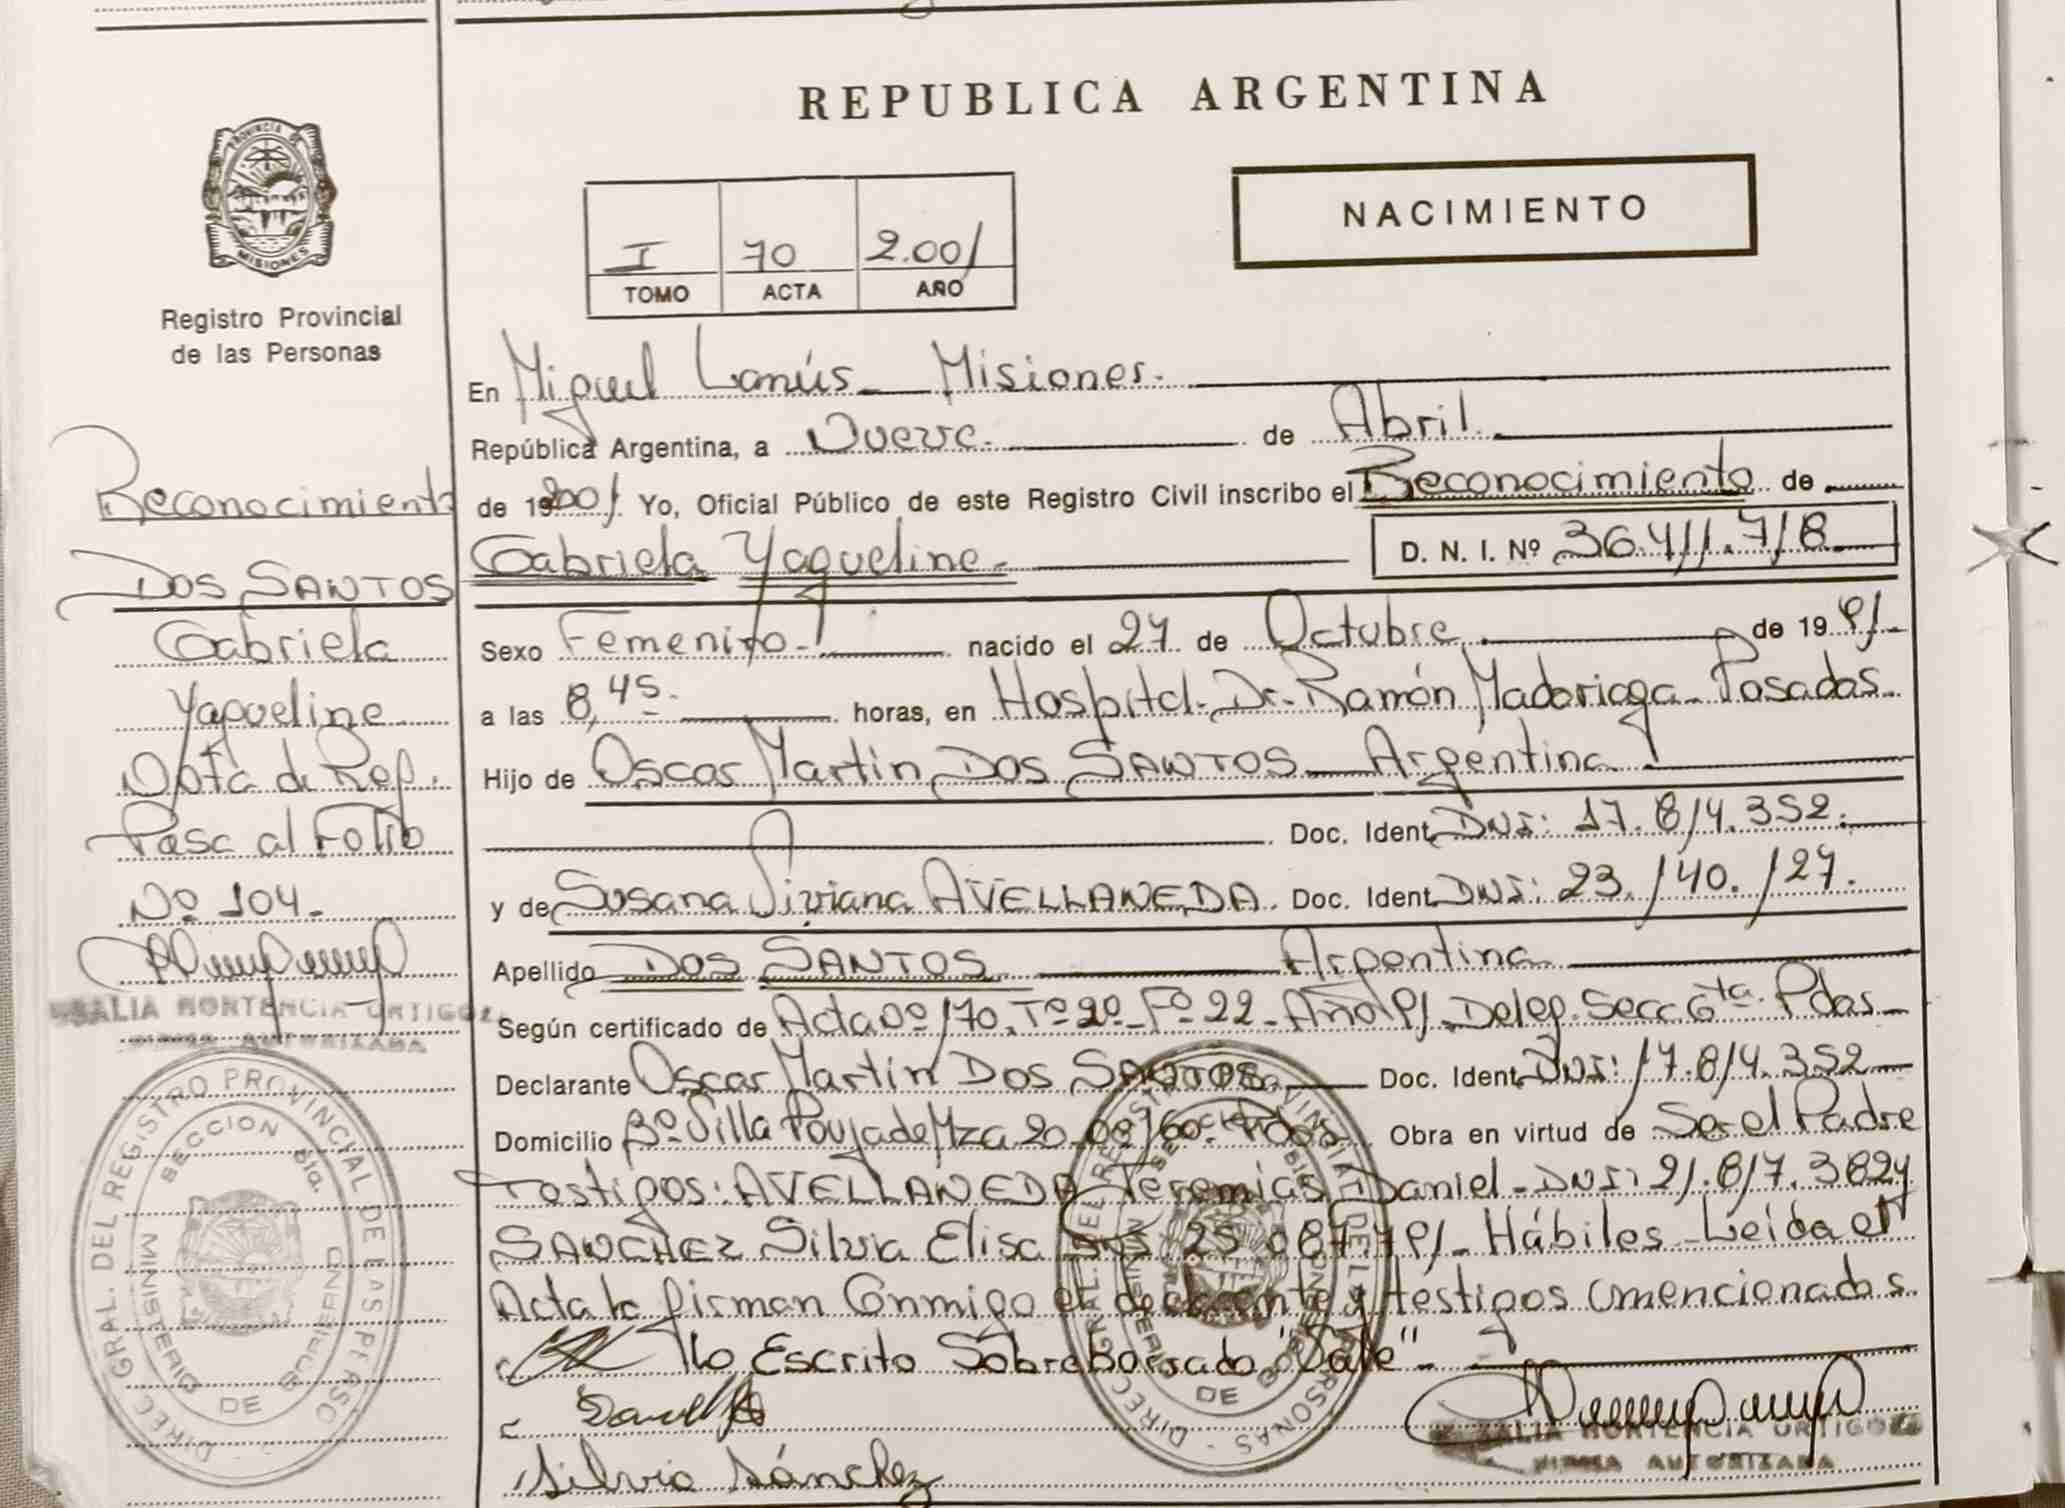 REPUBLICA ARGENTINA
NACIMIENTO
I 70 2.001
TOMO ACTA AÑO
PROVINCIA DE MISIONES
Registro Provincial
de las Personas
Reconocimiento
DOS SANTOS
Gabriela
Yaqueline
Nota de Ref.
Pasa al Folio
Nº 104.
ROSALIA HORTENCIA ORTIGOZA
FIRMA AUTORIZADA
DIREC. GRAL. DEL REGISTRO PROVINCIAL DE LAS PERSONAS
MINISTERIO DE GOBIERNO
SECCION 6ta.
En Miguel Lanús - Misiones.
República Argentina, a Nueve. de Abril.
de 192001. Yo, Oficial Público de este Registro Civil inscribo el Reconocimiento de
Gabriela Yaqueline. D. N. I. Nº 36.411.718
Sexo Femenino. nacido el 27 de Octubre de 1991.
a las 8,45. horas, en Hospital Dr. Ramón Madariaga - Posadas.
Hijo de Oscar Martin DOS SANTOS Argentina
Doc. Ident. DNI: 17.814.352.
y de Susana Viviana AVELLANEDA. Doc. Ident. DNI: 23.140.127.
Apellido DOS SANTOS Argentina
Según certificado de Acta Nº 170. Tº 2º - Fº 22 - Año 91. Deleg. Secc 6ta. Pdas -
Declarante Oscar Martin DOS SANTOS. Doc. Ident. DNI: 17.814.352
Domicilio Bº Villa Poujade Mza 20. Pdas. Obra en virtud de Ser el Padre
Testigos: AVELLANEDA Jeremias Daniel - DNI: 21.817.382 y
SANCHEZ Silvia Elisa DNI 25.087.791 - Hábiles - Leída el
Acta la firman Conmigo el declarante y testigos mencionados.
Lo Escrito Sobreborrado "Vale" -
Silvia Sánchez
DIREC. GRAL. DEL REGISTRO PROVINCIAL DE LAS PERSONAS
MINISTERIO DE GOBIERNO
ROSALIA HORTENCIA ORTIGOZA
FIRMA AUTORIZADA